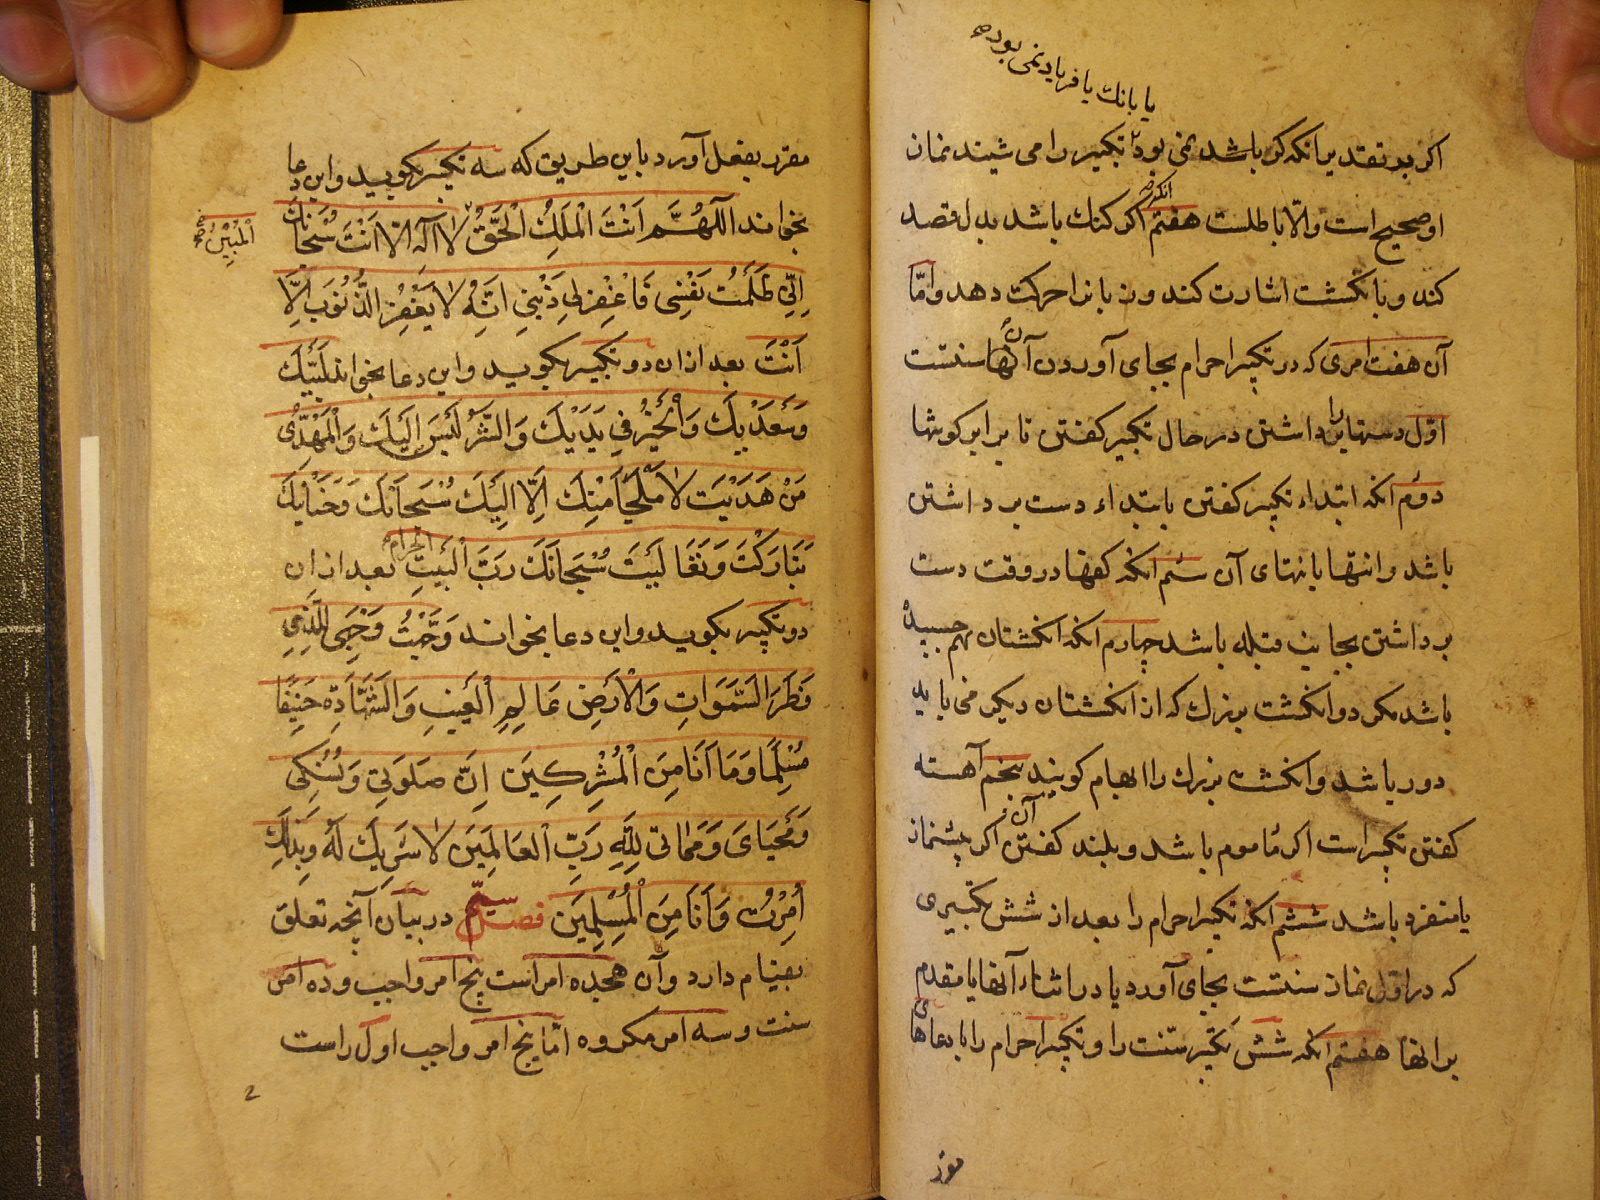 یا بانك یا فریاد نمی بوده
اکر بر تقدیر انکه کر باشد نمی بود تکبیر را می شنید نماز
او صحیح است والّا باطلست هفتم انکه اکر کنك باشد بدل قصد
کند و بانکشت اشارت کند و زبانرا حرکت دهد وامّا
آن هفت امری که در تکبیر احرام بجای آوردن آنها سنتست
اوّل دستها را برداشتن در حال تکبیر کفتن تا برابر کوشها
دوم انکه ابتداء تکبیر کفتن بابتداء دست برداشتن
باشد وانتها بانتهای آن سیم انکه کفها در وقت دست
برداشتن بجانب قبله باشد چهارم انکه انکشتان بهم چسبیده
باشد مکر دو انکشت بزرك که از انکشتان دیکر می باید
دور باشد وانکشت بزرك را ابهام کویند پنجم آهسته
کفتن تکبیر است اکر مأموم باشد و بلند کفتن آن اکر پیشنماز
یا منفرد باشد ششم انکه تکبیر احرام را بعد از شش تکبیری
که در اوّل نماز سنتست بجای آورد یا در اثناء آنها یا مقدم
بر انها هفتم انکه شش تکبیر سنت را و تکبیر احرام را با دعاهای
مقرر بفعل آورد باین طریق که سه تکبیر بکوید واین دعا
بخواند اَللّهُمَّ اَنْتَ الْمَلِكُ الْحَقُّ لا اِلهَ اِلّا اَنْتَ سُبْحانَكَ
اَلْمُبِینُ صح
اِنّی ظَلَمْتُ نَفْسی فَاغْفِرْ لی ذَنْبی اِنَّهُ لا یَغْفِرُ الذُّنُوبَ اِلّا
اَنْتَ بعد ازان دو تکبیر بکوید واین دعا بخواند لَبَّیْكَ
وَسَعْدَیْكَ وَالْخَیْرُ فی یَدَیْكَ وَالشَّرُّ لَیْسَ اِلَیْكَ وَالْمَهْدِیُّ
مَنْ هَدَیْتَ لا مَلْجَأَ مِنْكَ اِلّا اِلَیْكَ سُبْحانَكَ وَحَنانَیْكَ
تَبارَكْتَ وَتَعالَیْتَ سُبْحانَكَ رَبَّ الْبَیْتِ الحرام بعد ازان
دو تکبیر بکوید واین دعا بخواند وَجَّهْتُ وَجْهِیَ لِلَّذی
فَطَرَ السَّمَواتِ وَالْاَرْضِ عالِمِ الْغَیْبِ وَالشَّهادَةِ حَنیفًا
مُسْلِمًا وَما اَنَا مِنَ الْمُشْرِکینَ اِنَّ صَلوتی وَنُسُکی
وَمَحْیایَ وَمَماتی لِلّهِ رَبِّ الْعالَمینَ لا شَریكَ لَهُ وَبِذلِكَ
اُمِرْتُ وَاَنَا مِنَ الْمُسْلِمینَ فصل سیّم در بیان آنچه تعلق
بقیام دارد وآن هجده امر است پنج امر واجب وده امر
سنت وسه امر مکروه امّا پنج امر واجب اوّل راست